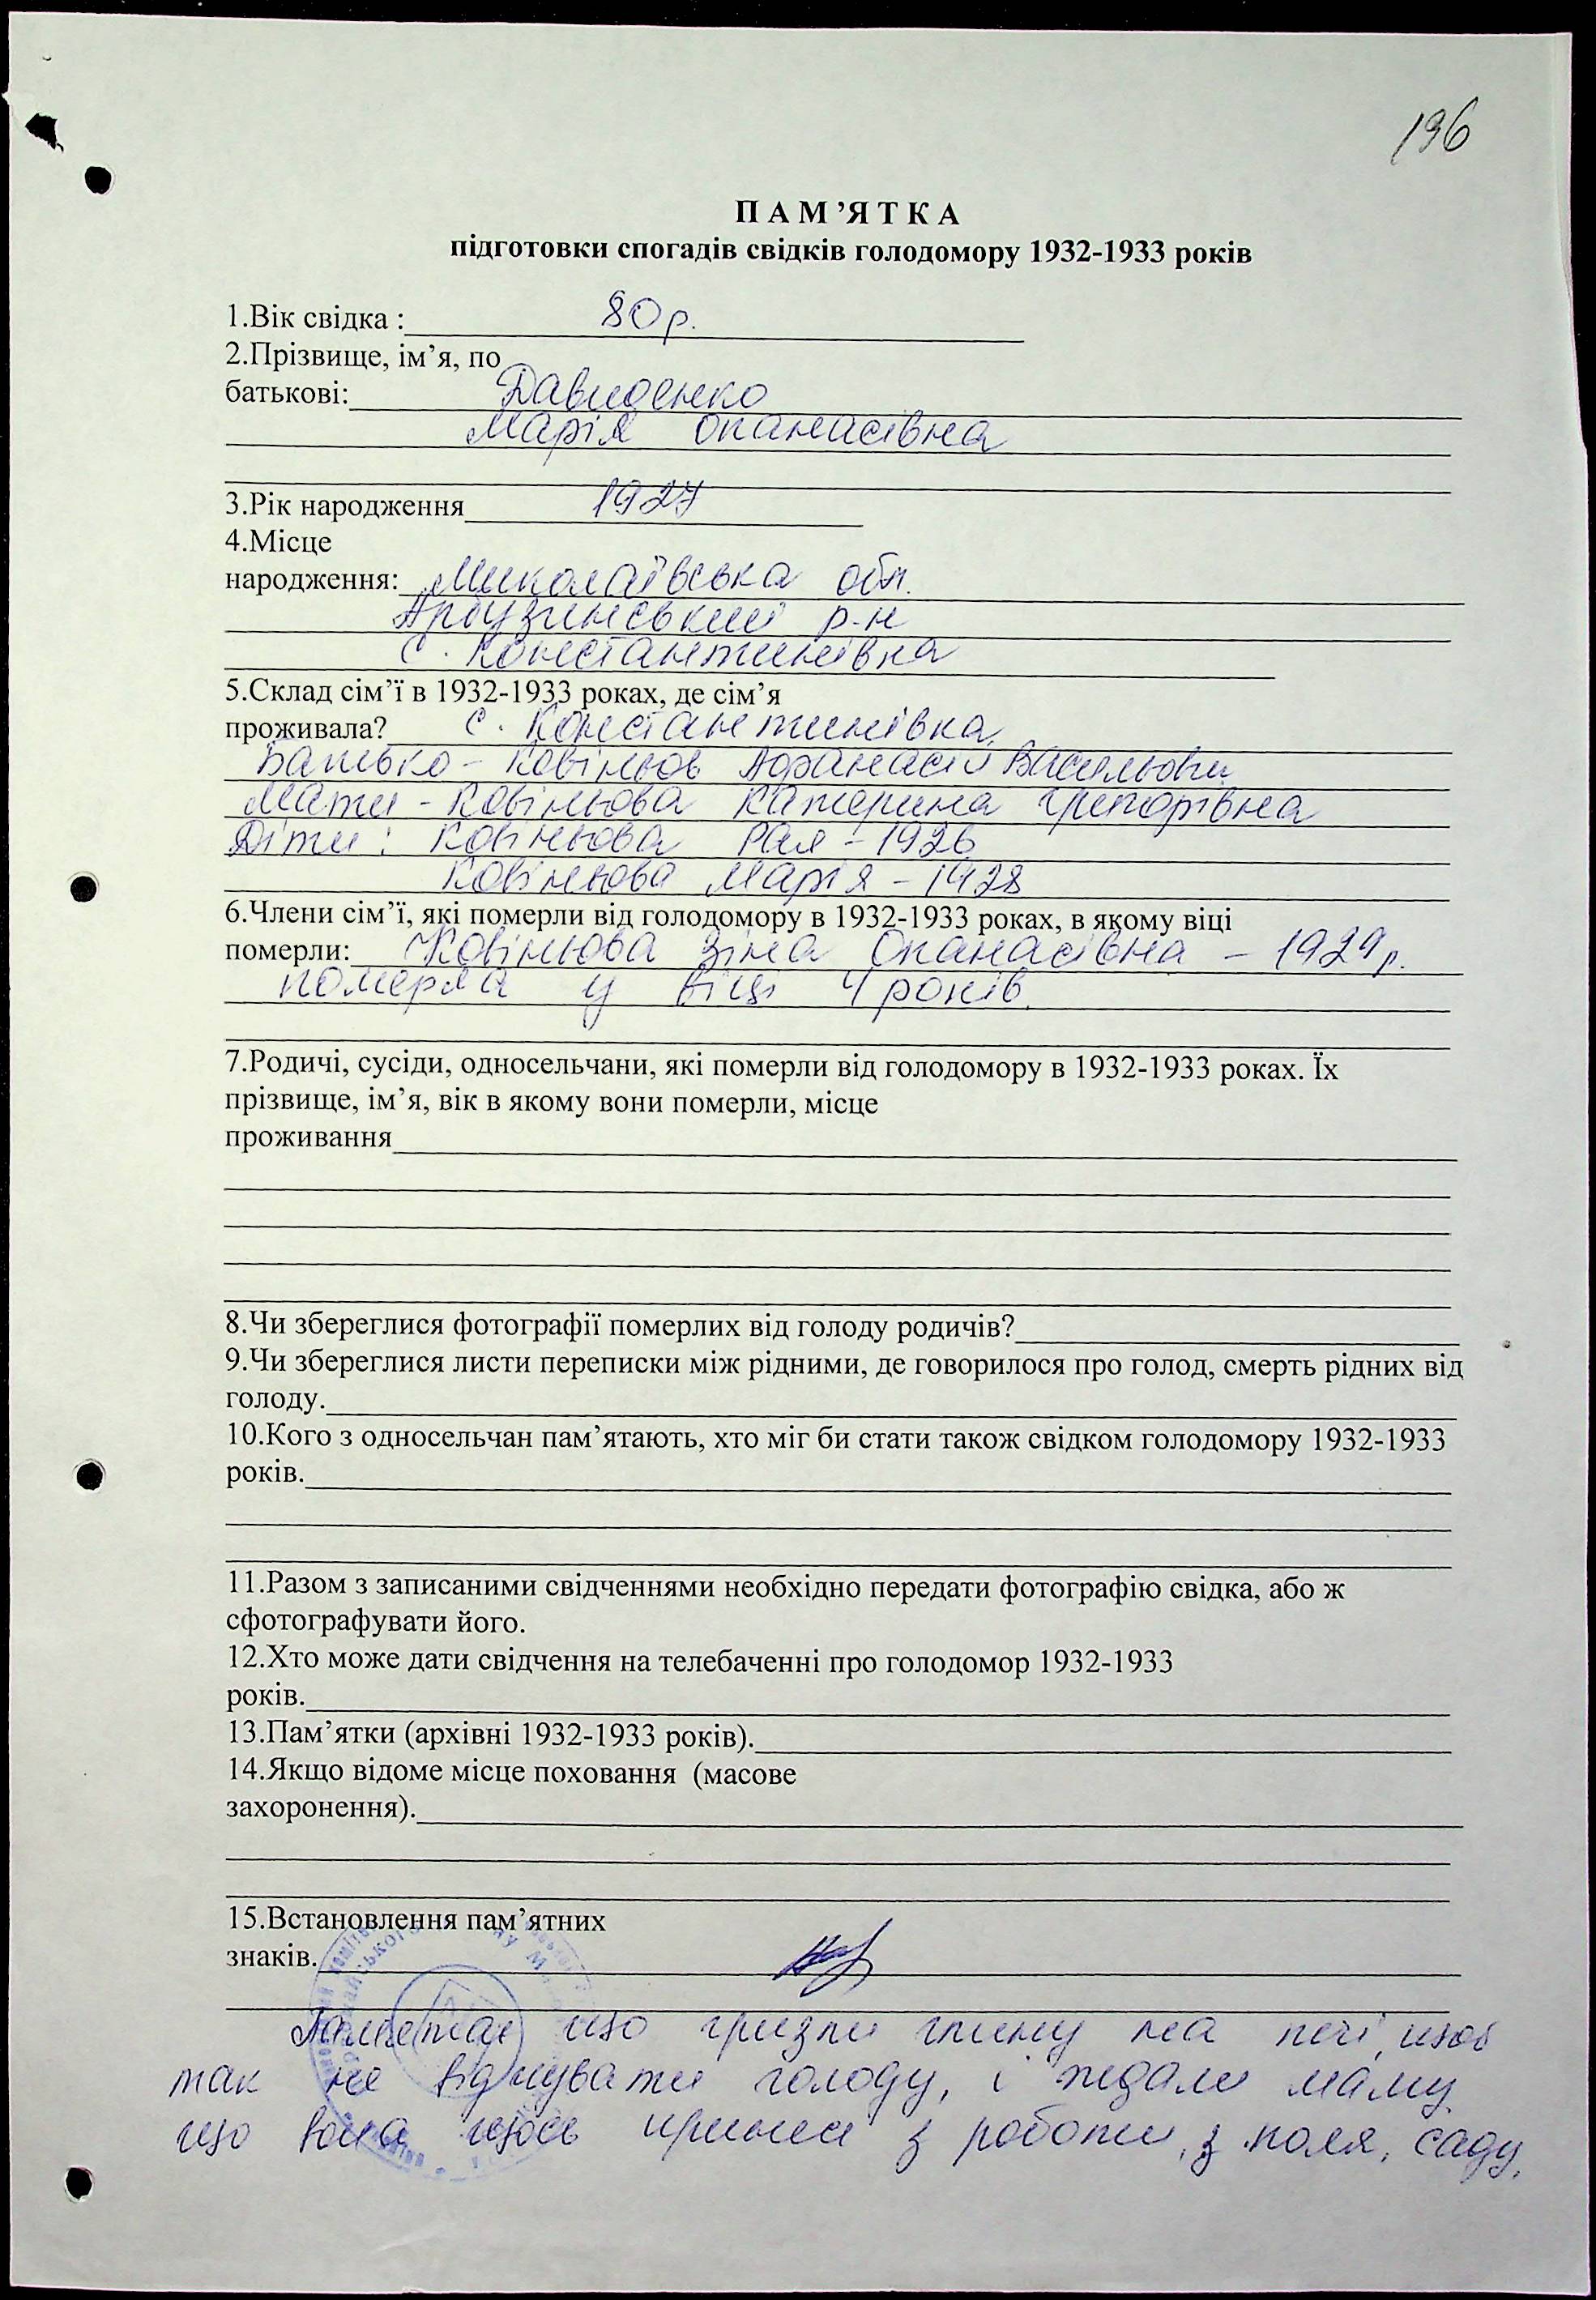 196
ПАМ’ЯТКА
підготовки спогадів свідків голодомору 1932-1933 років
1.Вік свідка : 80 р.
2.Прізвище, ім’я, по
батькові: Давиденко
Марія Опанасівна
3.Рік народження 1927
4.Місце
народження: Миколаївська обл.
Арбузинський р-н
с. Константинівка
5.Склад сім’ї в 1932-1933 роках, де сім’я
проживала? с. Константинівка,
Батько - Ковіньов Афанасій Васильови
Мати - Ковіньова Катерина Григорівна
Діти: Ковіньова Рая - 1926
Ковіньова Марія - 1928
6.Члени сім’ї, які померли від голодомору в 1932-1933 роках, в якому віці
померли: Ковіньова Зіна Опанасівна - 1929 р.
померла у віці 4 років.
7.Родичі, сусіди, односельчани, які померли від голодомору в 1932-1933 роках. Їх
прізвище, ім’я, вік в якому вони померли, місце
проживання
8.Чи збереглися фотографії померлих від голоду родичів?
9.Чи збереглися листи переписки між рідними, де говорилося про голод, смерть рідних від
голоду.
10.Кого з односельчан пам’ятають, хто міг би стати також свідком голодомору 1932-1933
років.
11.Разом з записаними свідченнями необхідно передати фотографію свідка, або ж
сфотографувати його.
12.Хто може дати свідчення на телебаченні про голодомор 1932-1933
років.
13.Пам’ятки (архівні 1932-1933 років).
14.Якщо відоме місце поховання (масове
захоронення).
15.Встановлення пам’ятних
знаків.
що гризли глину на печі, щоб
так не відчувати голоду, і ждали маму
що вона щось принесе з роботи, з поля, саду.